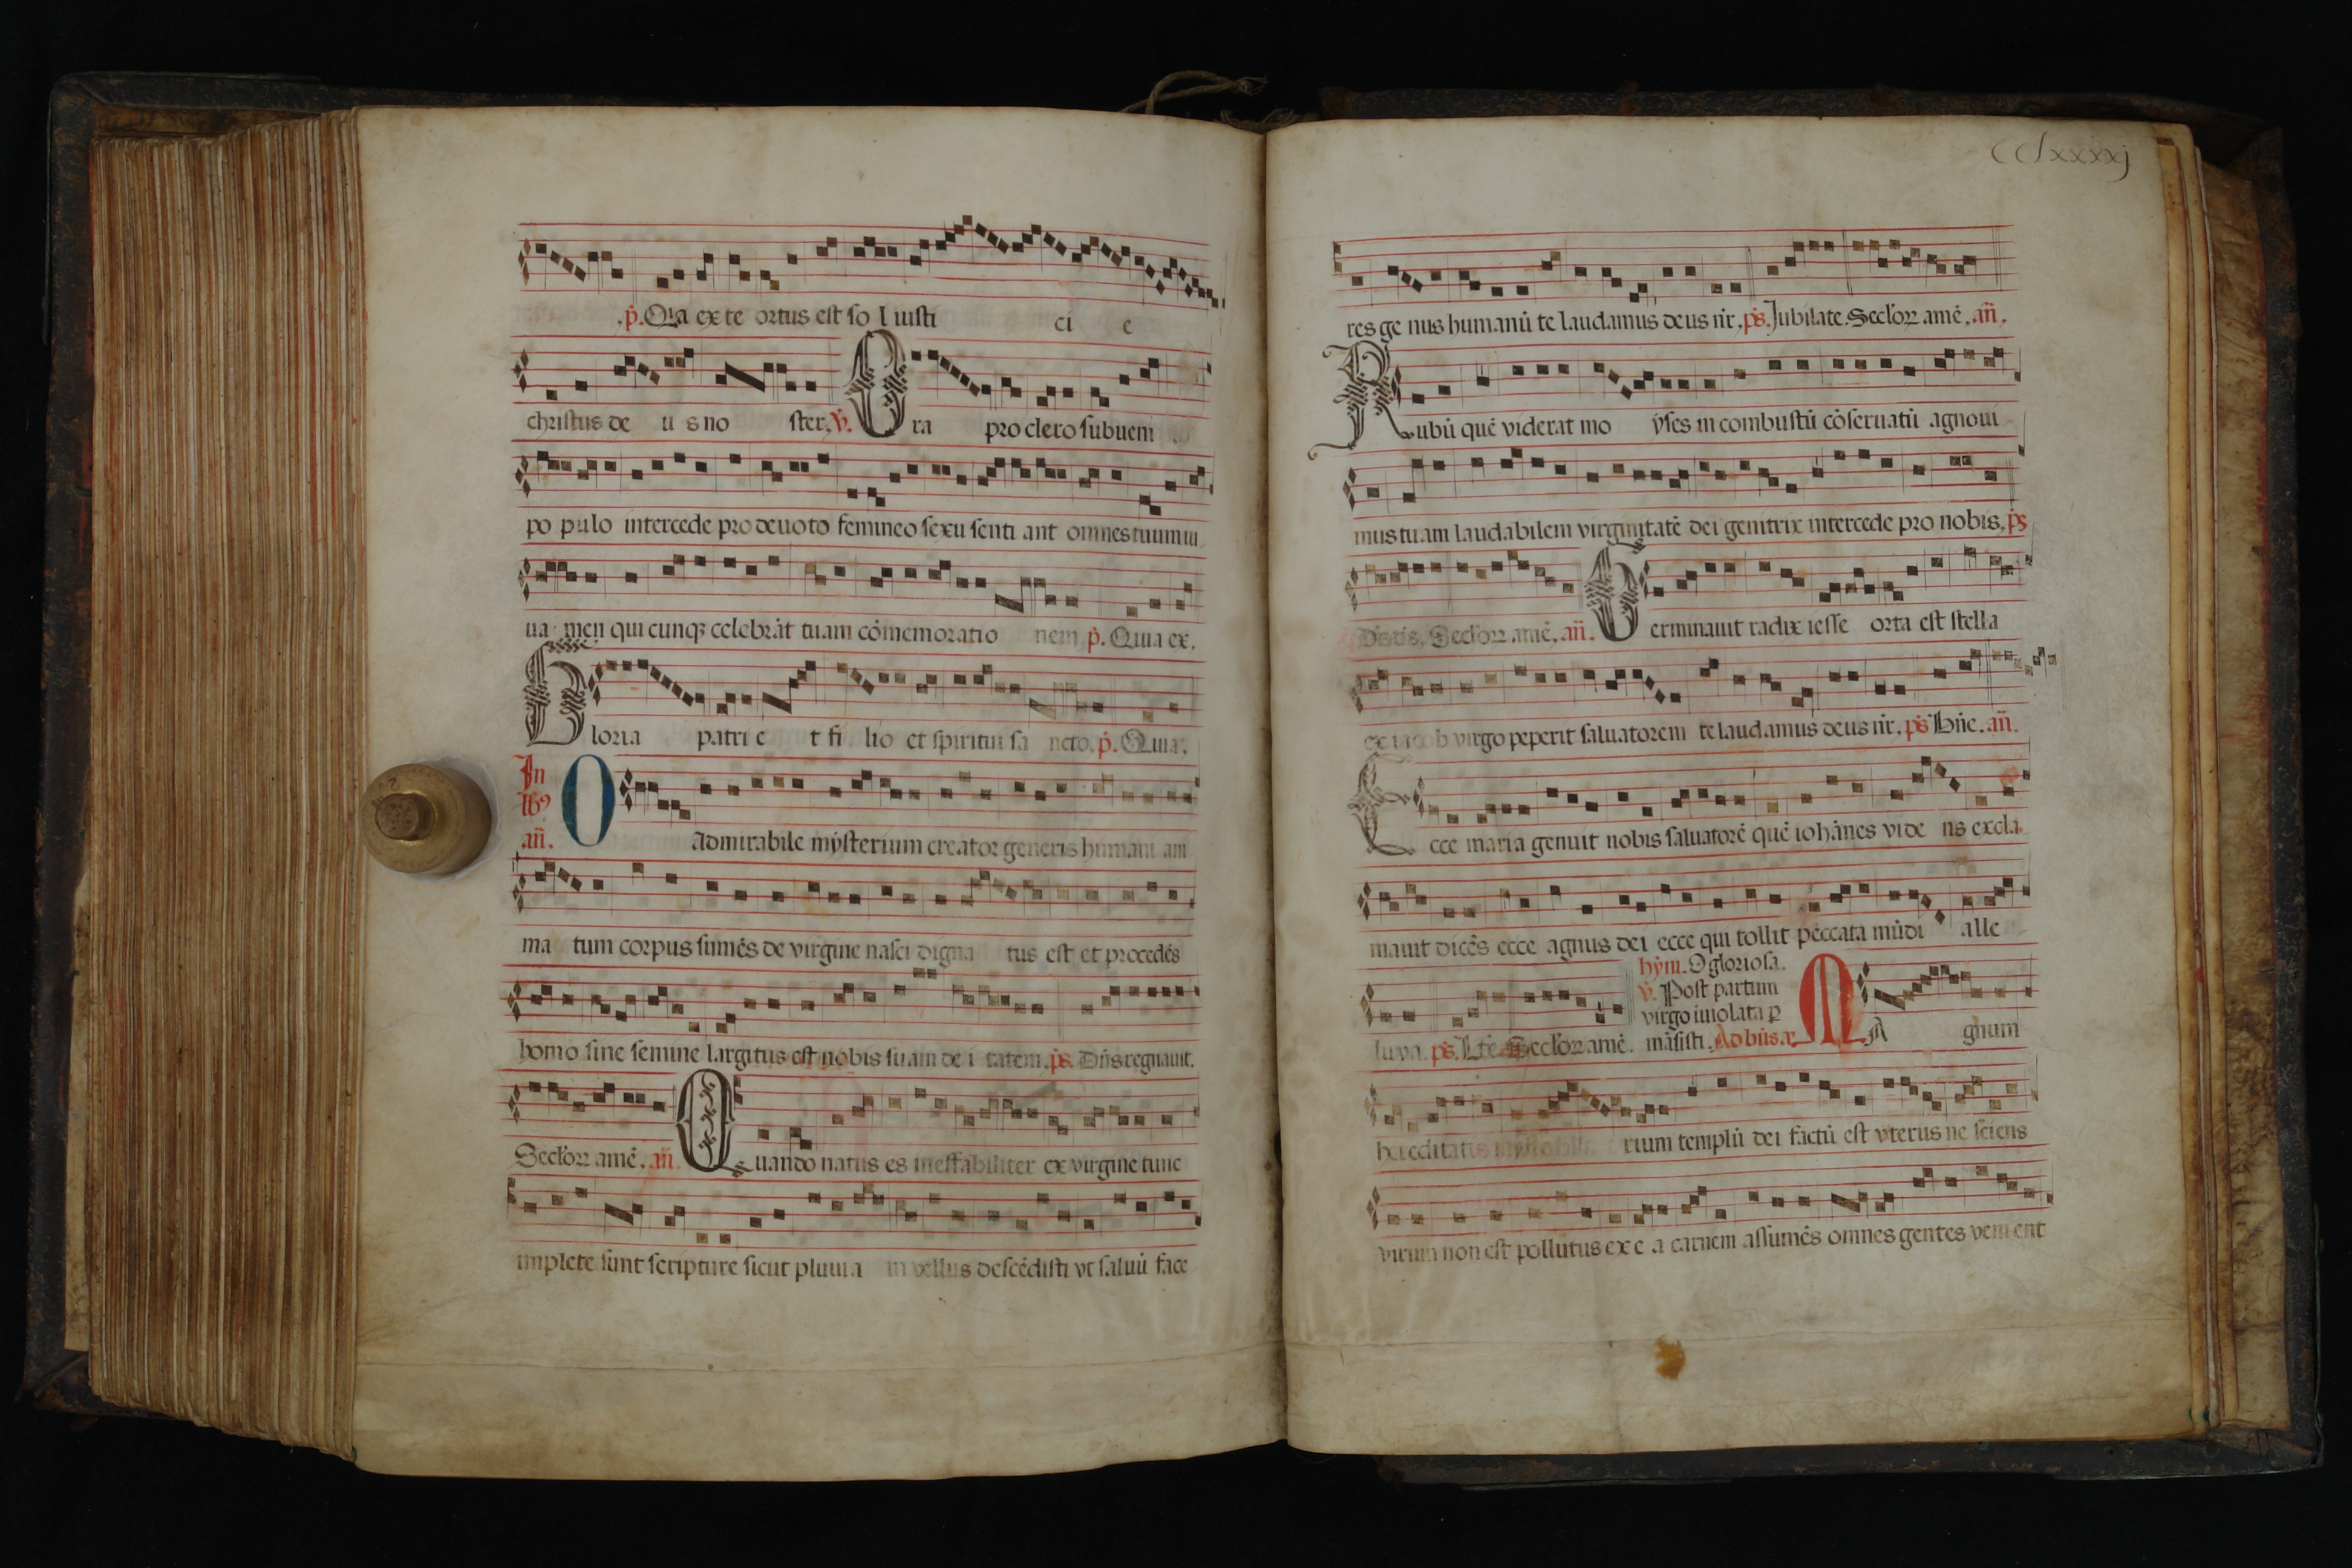 .p̄. Q̄ia ex te ortus est so l iusti ci e
christus de u s no ster. v̄. Ora pro clero subueni
po pulo intercede pro deuoto femineo sexu senti ant omnes tuum iu
ua men qui cunqꝫ celebrāt tuam cōmemoratio nem. p̄. Quia ex.
Gloria patri e t fi lio et spiritui sa ncto. p̄. Quia.
In lꝰ an̄. O Admirabile mẏsterium creator generis humani ani
ma tum corpus sumēs de virgine nasci digna tus est et procedēs
homo sine semine largitus est nobis suam de i tatem. ps̄. Dn̄s regnauit.
Seclꝰoꝝ amē. an̄. Quando natus es ineffabiliter ex virgine tunc
implete sunt scripture sicut pluuia in vellus descēdisti vt saluū face
CClxxxxj
res ge nus humanū te laudamus deus nr̄. ps̄. Jubilate. Seclꝰoꝝ amē. an̄.
Rubū quē viderat mo ẏses in combustū cōseruatū agnoui
mus tuam laudabilem virginitatē dei genitrix intercede pro nobis. ps̄
Seclꝰoꝝ amē. an̄. Germinauit radix iesse orta est stella
ex iacob virgo peperit saluatorem te laudamus deus nr̄. ps̄ Bn̄e. an̄.
Ecce maria genuit nobis saluatorē quē iohānes vide ns excla
mauit dicēs ecce agnus dei ecce qui tollit peccata mūdi alle
luya. ps̄. Seclꝰoꝝ amē.
hẏm. O gloriosa.
v̄. Post partum
virgo inuiolata ꝑ
māsisti. Ad bn̄s an̄. MA gnum
hereditatis rium templū dei factū est vterus ne sciens
virum non est pollutus ex e a carnem assumēs omnes gentes veni ent